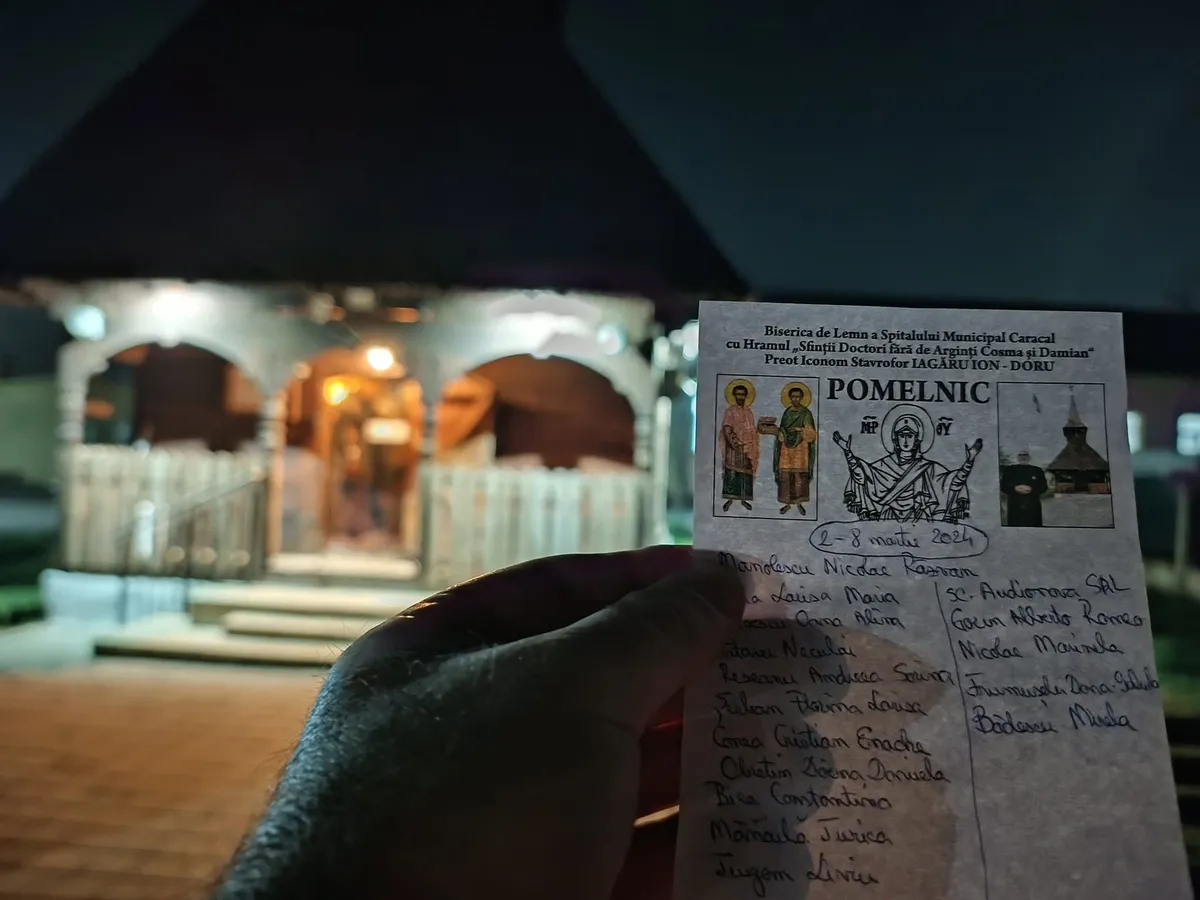 Biserica de Lemn a Spitalului Municipal Caracal
cu Hramul „Sfinții Doctori fără de Arginți Cosma și Damian”
Preot Iconom Stavrofor IAGĂRU ION - DORU
POMELNIC
MP ΘY
2-8 martie 2024
Manolescu Nicolae Razvan
Larisa Maria
Oana Alina
Neculai
Andreea Sorina
Florina Larisa
Conea Cristian Enache
Doina Daniela
Bica Constantina
Mănăilă Jurica
Liviu
SC. Audionova SRL
Gocin Alberto Romeo
Nicolae Marinela
Frumuselu Dana
Bădescu Mirela